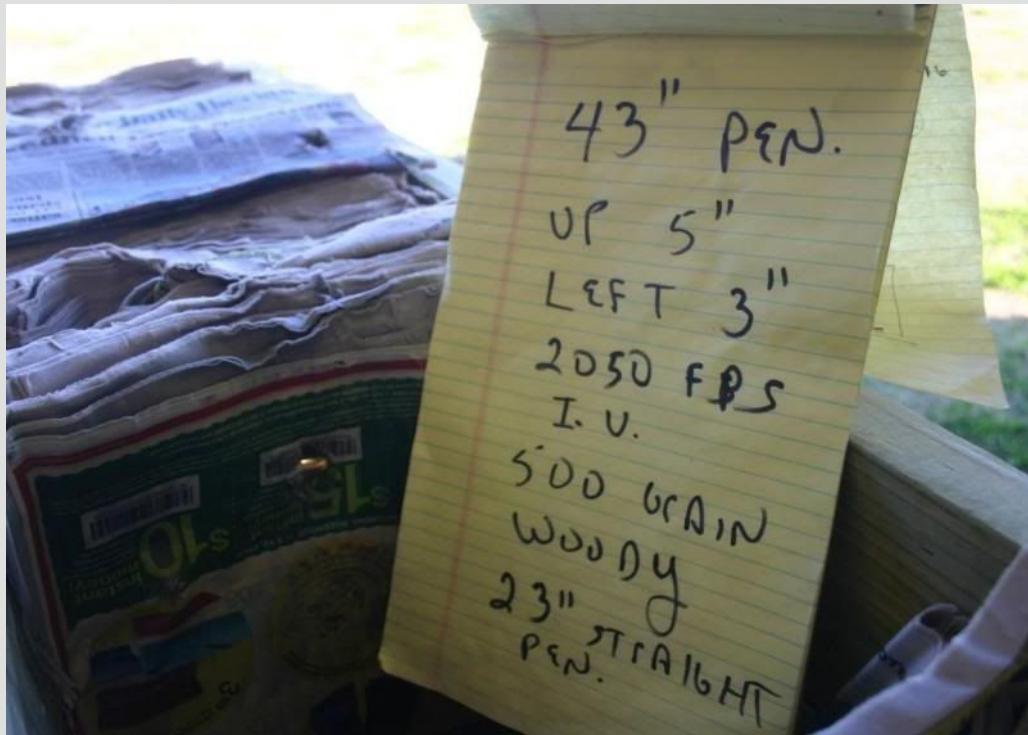 43" PEN.
UP 5"
LEFT 3"
2050 FPS
I.V.
500 GRAIN
WOODY
23" STRAIGHT
PEN.
$15
$10
Instant